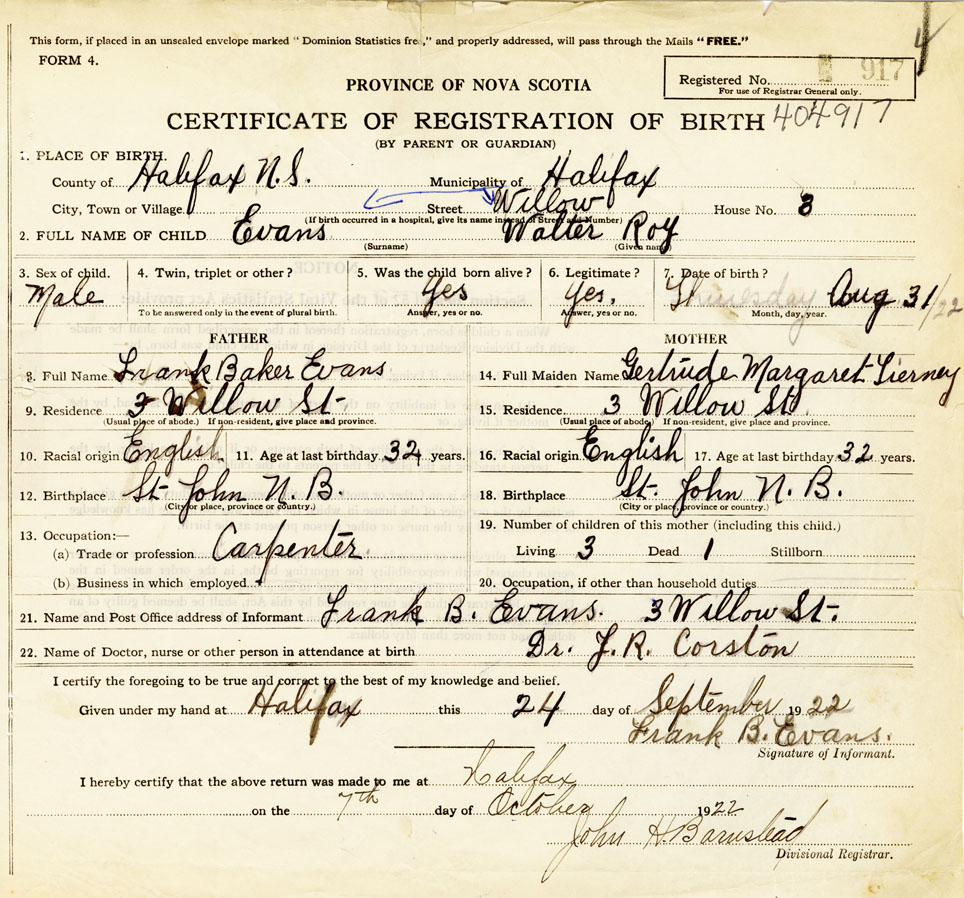 This form, if placed in an unsealed envelope marked "Dominion Statistics free," and properly addressed, will pass through the Mails "FREE." 4
FORM 4.
Registered No. 917
For use of Registrar General only.
PROVINCE OF NOVA SCOTIA
CERTIFICATE OF REGISTRATION OF BIRTH 404917
(BY PARENT OR GUARDIAN)
1. PLACE OF BIRTH.
County of Halifax N.S. Municipality of Halifax
City, Town or Village Street Willow House No. 3
(If birth occurred in a hospital, give its name instead of Street and Number)
2. FULL NAME OF CHILD Evans Walter Roy
(Surname) (Given name)
3. Sex of child. 4. Twin, triplet or other? 5. Was the child born alive? 6. Legitimate? 7. Date of birth?
Male Yes Yes. Thuresday Aug 31/22
To be answered only in the event of plural birth. Answer, yes or no. Answer, yes or no. Month, day, year.
FATHER MOTHER
8. Full Name Frank Baker Evans 14. Full Maiden Name Gertrude Margaret Tierney
9. Residence 3 Willow St 15. Residence 3 Willow St.
(Usual place of abode.) If non-resident, give place and province. (Usual place of abode) If non-resident, give place and province.
10. Racial origin English 11. Age at last birthday 32 years. 16. Racial origin English 17. Age at last birthday 32 years.
12. Birthplace St John N.B. 18. Birthplace St. John N.B.
(City or place, province or country.) (City or place, province or country.)
13. Occupation:— 19. Number of children of this mother (including this child.)
(a) Trade or profession Carpenter Living 3 Dead 1 Stillborn
(b) Business in which employed 20. Occupation, if other than household duties
21. Name and Post Office address of Informant Frank B. Evans. 3 Willow St.
22. Name of Doctor, nurse or other person in attendance at birth Dr. J.R. Corston
I certify the foregoing to be true and correct to the best of my knowledge and belief.
Given under my hand at Halifax this 24 day of September 1922
Frank B. Evans.
Signature of Informant.
I hereby certify that the above return was made to me at Halifax
on the 7th day of October 1922
John H. Barnstead
Divisional Registrar.